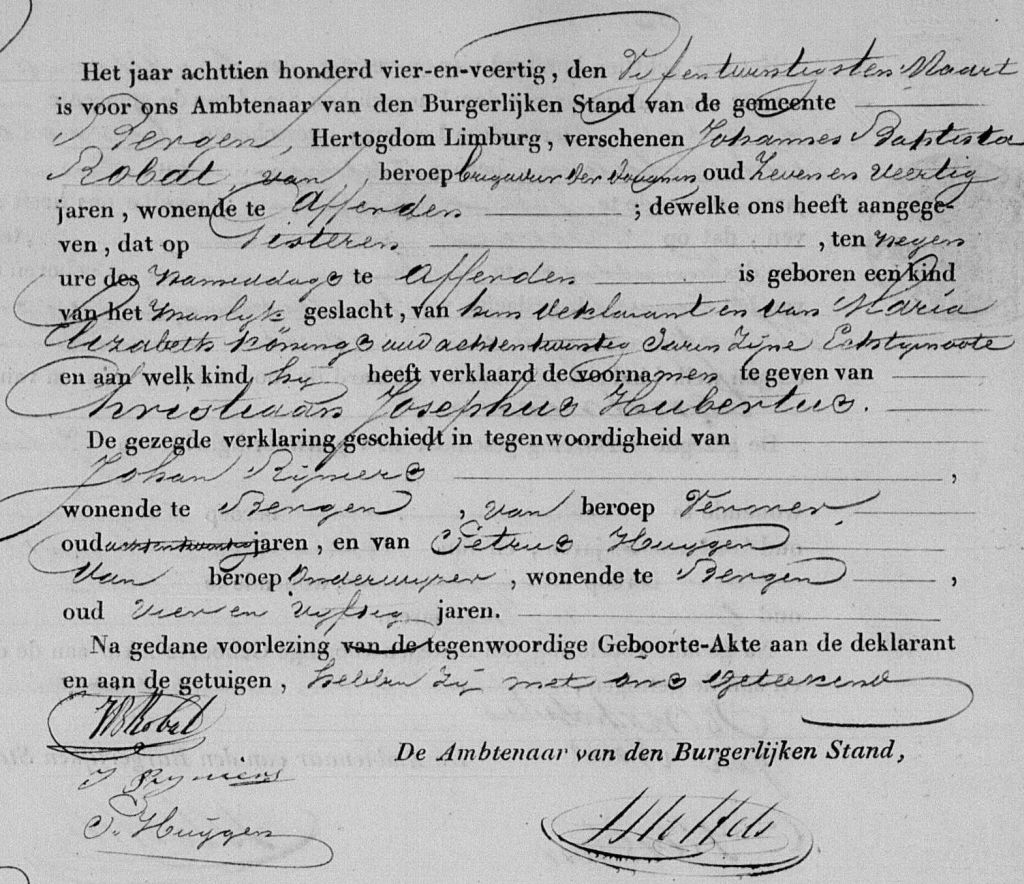 Het jaar achttien honderd vier-en-veertig, den Vijfentwintigsten Maart
is voor ons Ambtenaar van den Burgerlijken Stand van de gemeente
Bergen, Hertogdom Limburg, verschenen Johannes Baptista
Robat, van beroep brigadier der douanen oud Zeven en Veertig
jaren, wonende te Afferden ; dewelke ons heeft aangege-
ven, dat op Gisteren , ten negen
ure des Nameddags te Afferden is geboren een kind
van het Manlijk geslacht, van hem deklarant en van Maria
Elizabeth Konings oud achtentwintig Jaren Zijne Echtgenoote
en aan welk kind hij heeft verklaard de voornamen te geven van
Christiaan Josephus Hubertus.
De gezegde verklaring geschiedt in tegenwoordigheid van
Johan Rijmers ,
wonende te Bergen , van beroep Vermer
oud achtentwintig jaren, en van Petrus Huijgen
Van beroep Onderwijzer , wonende te Bergen ,
oud Vier en Vijftig jaren.
Na gedane voorlezing van de tegenwoordige Geboorte-Akte aan de deklarant
en aan de getuigen, hebben Zij met ons geteekend
JB Robat
De Ambtenaar van den Burgerlijken Stand,
J Rymers
P. Huijgen